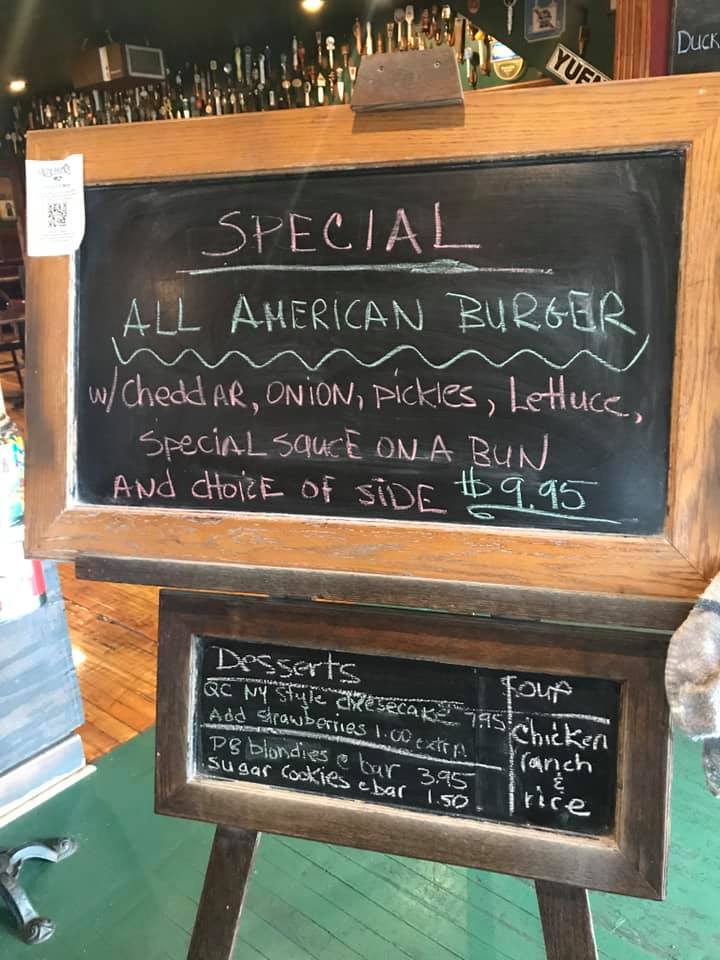 DUCK
YUE
SPECIAL
ALL AMERICAN BURGER
w/ CheddAR, ONION, pickles, Lettuce,
SpeciaL sauce ON A BUN
AND cHOICE OF SIDE $9.95
Desserts
QC NY style cheesecake 7.95
Add strawberries 1.00 extra
PB blondies @ bar 3.95
sugar cookies @ bar 1.50
Soup
Chicken
ranch
&
rice